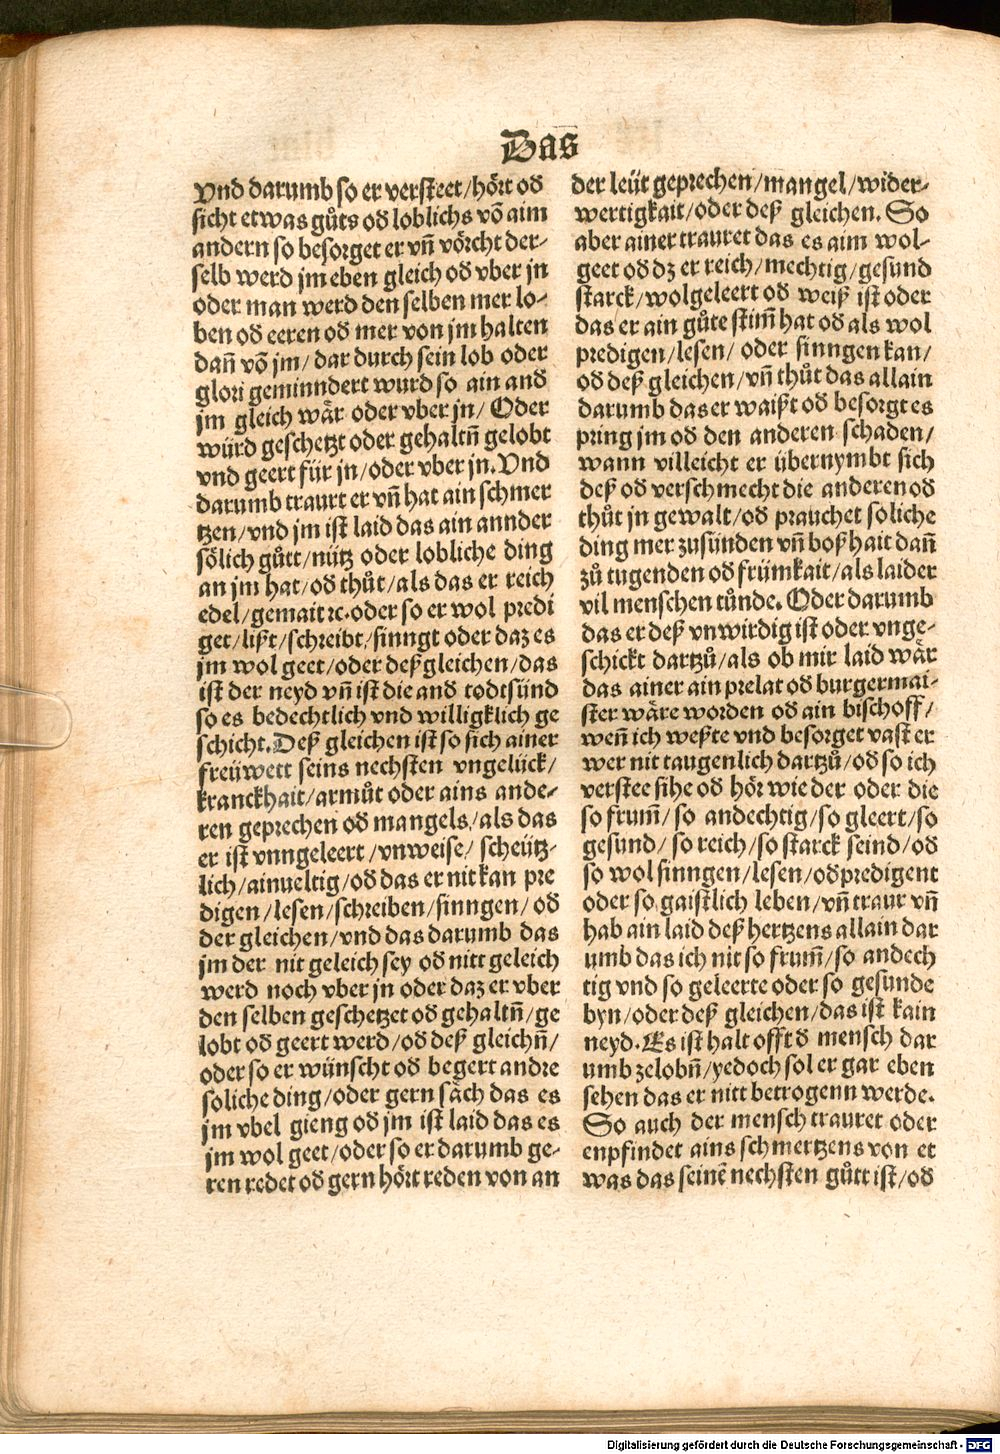 Das
Vnd darumb so er versteet/hört oď
sicht etwas gůts oď loblichs võ aim
andern so besorget er vñ vörcht der-
selb werd jm eben gleich oď vber jn
oder man werd den selben mer lo-
ben oď eeren oď mer von jm halten
dañ võ jm/dar durch sein lob oder
glori geminndert wurd so ain anď
jm gleich wår oder vber jn/Oder
würd geschetzt oder gehaltñ gelobt
vnd geert für jn/oder vber jn. Vnd
darumb traurt er vñ hat ain schmer
tzen/vnd jm ist laid das ain annder
sölich gůtt/nütz oder lobliche ding
an jm hat/oď thůt/als das er reich
edel/gemait ⁊c. oder so er wol predi
get/lißt/schreibt/sinngt oder daz es
jm wol geet/oder deßgleichen/das
ist der neyd vñ ist die anď todtsünd
so es bedechtlich vnd willigklich ge
schicht. Deß gleichen ist so sich ainer
freüwett seins nechsten vngelück/
kranckhait/armůt oder ains ande-
ren geprechen oď mangels/als das
er ist vnngeleert/vnweise/scheütz-
lich/ainueltig/oď das er nit kan pre
digen/lesen/schreiben/sinngen/oď
der gleichen/vnd das darumb das
jm der nit geleich sey oď nitt geleich
werd noch vber jn oder daz er vber
den selben geschetzet oď gehaltñ/ge
lobt oď geert werd/oď deß gleichñ/
oder so er wünscht oď begert andre
soliche ding/oder gern såch das es
jm vbel gieng oď jm ist laid das es
jm wol geet/oder so er darumb ge-
ren redet oď gern hört reden von an
der leüt geprechen/mangel/wider-
wertigkait/oder deß gleichen. So
aber ainer trauret das es aim wol-
geet oď dz er reich/mechtig/gesund
starck/wolgeleert oď weiß ist oder
das er ain gůte stim̃ hat oď als wol
predigen/lesen/oder sinngen kan/
oď deß gleichen/vñ thůt das allain
darumb das er waißt oď besorgt es
pring jm oď den anderen schaden/
wann villeicht er übernymbt sich
deß oď verschmecht die anderen oď
thůt jn gewalt/oď prauchet soliche
ding mer zusünden vñ boßhait dañ
zů tugenden oď frümkait/als laider
vil menschen tůnde. Oder darumb
das er deß vnwirdig ist oder vnge-
schickt dartzů/als ob mir laid wår
das ainer ain prelat oď burgermai-
ster wåre worden oď ain bischoff/
weñ ich weßte vnd besorget vast er
wer nit taugenlich dartzů/oď so ich
verstee sihe oď hör wie der oder die
so frum̃/so andechtig/so gleert/so
gesund/so reich/so starck seind/oď
so wol sinngen/lesen/oď predigent
oder so gaistlich leben/vñ traur vñ
hab ain laid deß hertzens allain dar
umb das ich nit so frum̃/so andech
tig vnd so geleerte oder so gesunde
byn/oder deß gleichen/das ist kain
neyd. Es ist halt offt ď mensch dar
umb zelobñ/yedoch sol er gar eben
sehen das er nitt betrogenn werde.
So auch der mensch trauret oder
enpfindet ains schmertzens von et
was das seinẽ nechsten gůtt ist/oď
Digitalisierung gefördert durch die Deutsche Forschungsgemeinschaft - DFG